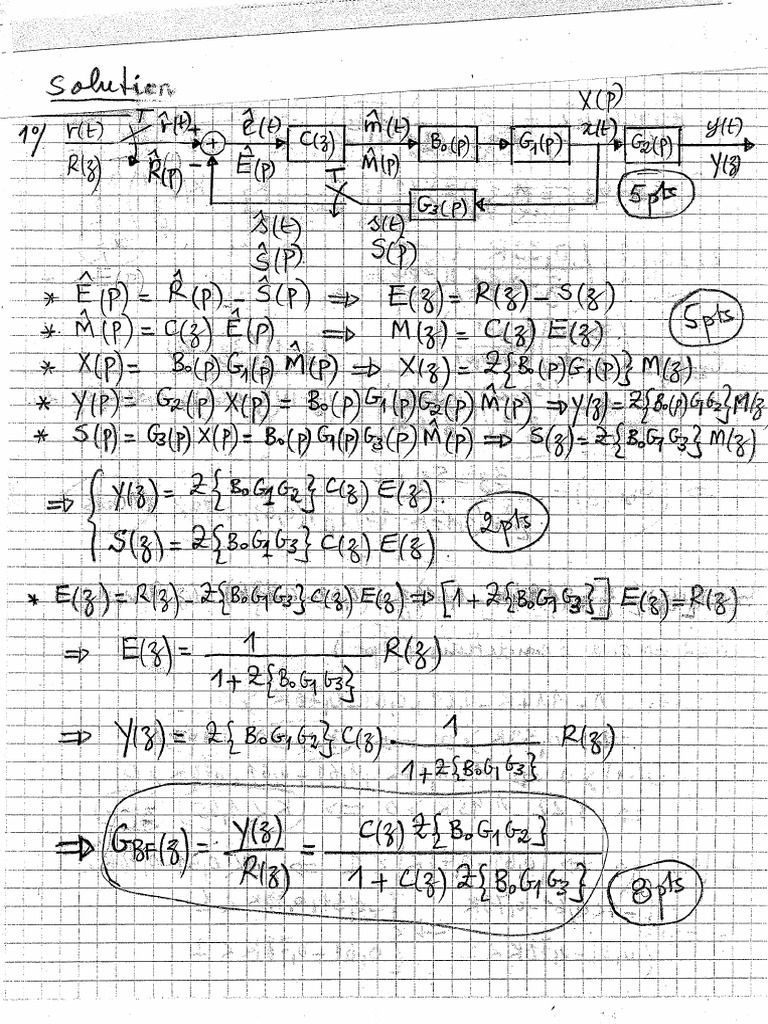 Solution
X(p)
1°/ r(t) T r̂(t) + ê(t) C(z) m̂(t) B₀(p) G₁(p) x(t) G₂(p) y(t)
R(z) R̂(p) - Ê(p) M̂(p) Y(z)
T G₃(p) 5pts
ŝ(t) s(t)
Ŝ(p) S(p)
* Ê(p) = R̂(p) - Ŝ(p) ⇒ E(z) = R(z) - S(z)
5pts
* M̂(p) = C(z) Ê(p) ⇒ M(z) = C(z) E(z)
* X(p) = B₀(p) G₁(p) M̂(p) ⇒ X(z) = Z{B₀(p)G₁(p)} M(z)
* Y(p) = G₂(p) X(p) = B₀(p) G₁(p) G₂(p) M̂(p) ⇒ Y(z) = Z{B₀(p)G₁G₂} M(z
* S(p) = G₃(p) X(p) = B₀(p) G₁(p) G₃(p) M̂(p) ⇒ S(z) = Z{B₀G₁G₃} M(z)
⇒ { Y(z) = Z{B₀G₁G₂} C(z) E(z).
2pts
S(z) = Z{B₀G₁G₃} C(z) E(z)
* E(z) = R(z) - Z{B₀G₁G₃} C(z) E(z) ⇒ [1 + Z{B₀G₁G₃}] E(z) = R(z)
⇒ E(z) = 1 / 1 + Z{B₀G₁G₃} R(z)
⇒ Y(z) = Z{B₀G₁G₂} C(z) · 1 / 1 + Z{B₀G₁G₃} R(z)
⇒ G_BF(z) = Y(z) / R(z) = C(z) Z{B₀G₁G₂} / 1 + C(z) Z{B₀G₁G₃}
8pts